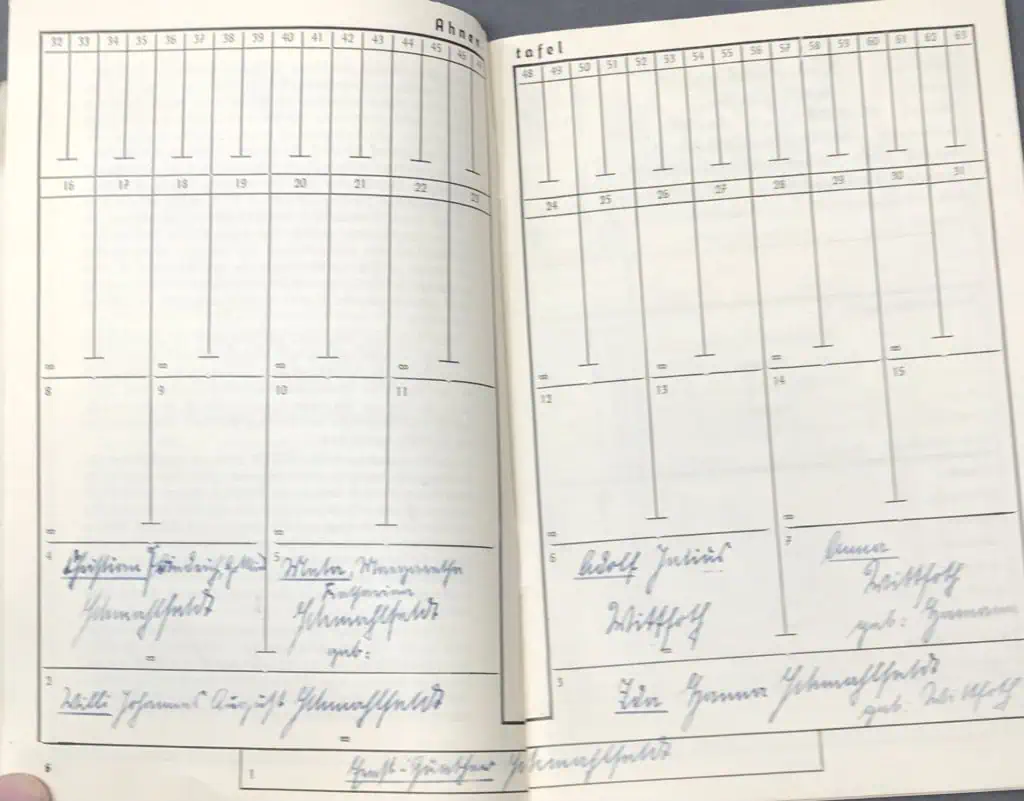 Ahnentafel
32 33 34 35 36 37 38 39 40 41 42 43 44 45 46 47
48 49 50 51 52 53 54 55 56 57 58 59 60 61 62 63
16 17 18 19 20 21 22 23
24 25 26 27 28 29 30 31
∞ ∞ ∞ ∞
∞ ∞ ∞ ∞
8 9 10 11
12 13 14 15
∞ ∞
∞ ∞
4 Christian Friedrich
Schmahlfeldt
5 Meta, Margaretha
Katharina
Schmahlfeldt
geb:
6 Adolf Julius
Wittfoth
7 Anna
Wittfoth
geb:
∞
∞
2
Willi Johannes August Schmahlfeldt
3
Ida Hanna Schmahlfeldt
geb. Wittfoth
∞
6
1 Ernst-Günther Schmahlfeldt